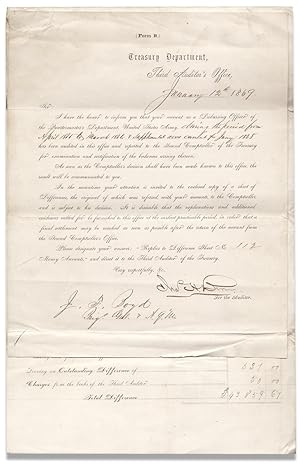 (Form B.)
Treasury Department,
Third Auditor's Office,
January 12th 1869.
Sir:
I have the honor to inform you that your account as a Disbursing Officer of the
Quartermaster's Department, United States Army, during the period from
April 1865 to March 1866 &
has been audited in this office and reported to the Second Comptroller of the Treasury
for examination and certification of the balances arising thereon.
As soon as the Comptroller's decision shall have been made known to this office, the
result will be communicated to you.
In the meantime your attention is invited to the enclosed copy of a sheet of
Differences, the original of which was reported with your account to the Comptroller
and is subject to his decision. It is desirable that the explanations and additional
evidence called for be furnished to this office at the earliest practicable period, in order that a
final settlement may be reached as soon as possible after the return of the account
from the Second Comptroller's Office.
Please designate your answer: Replies to Difference Sheet No. 112
Money Account, and direct it to the Third Auditor of the Treasury.
Very respectfully, &c.,
For the Auditor.
J. F. Boyd
Outstanding Difference of
Charges from the books of the Third Auditor
Total Difference